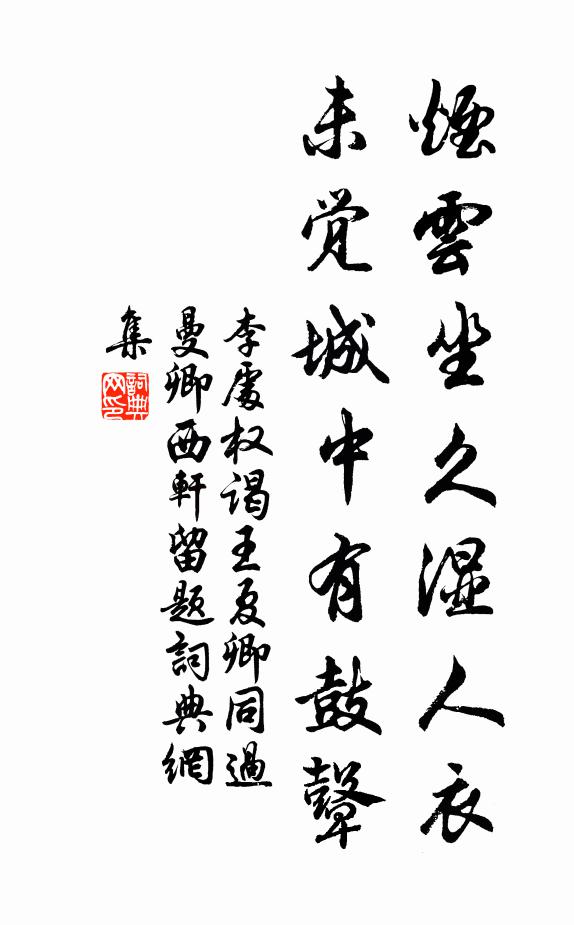 煙雲坐久湿人衣
未觉城中有鼓鼙
李處权謁王夏卿同過
曼卿西軒留題詞典網
集
詞典网印